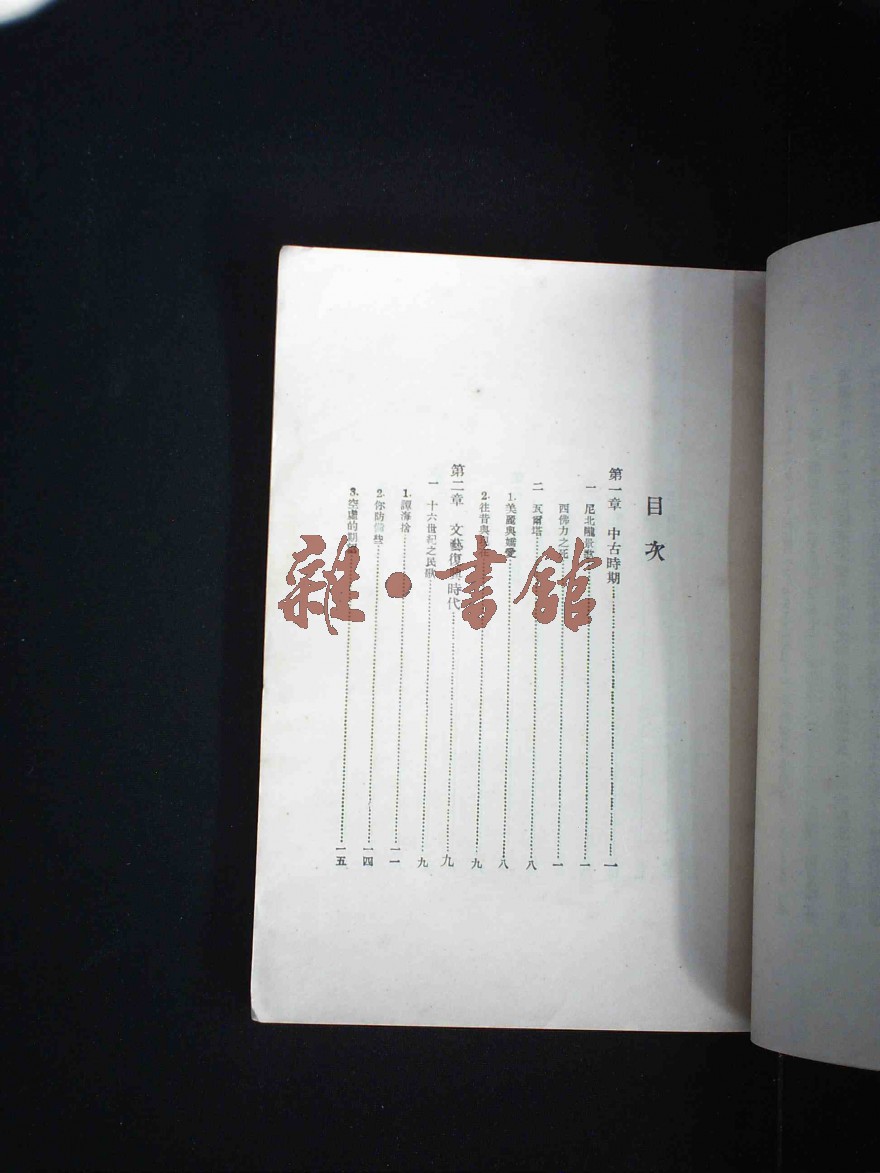 目次
第一章 中古時期 一
一 尼北龍歌 一
四佛力之死 一
二 瓦爾塔 八
1. 美麗與嬌愛 八
2. 往昔與 九
第二章 文藝復興時代 九
一 十六世紀之民歌 九
1. 譚海捨 一一
2. 你防備些 一四
3. 空虛的期 一五
雜·書館